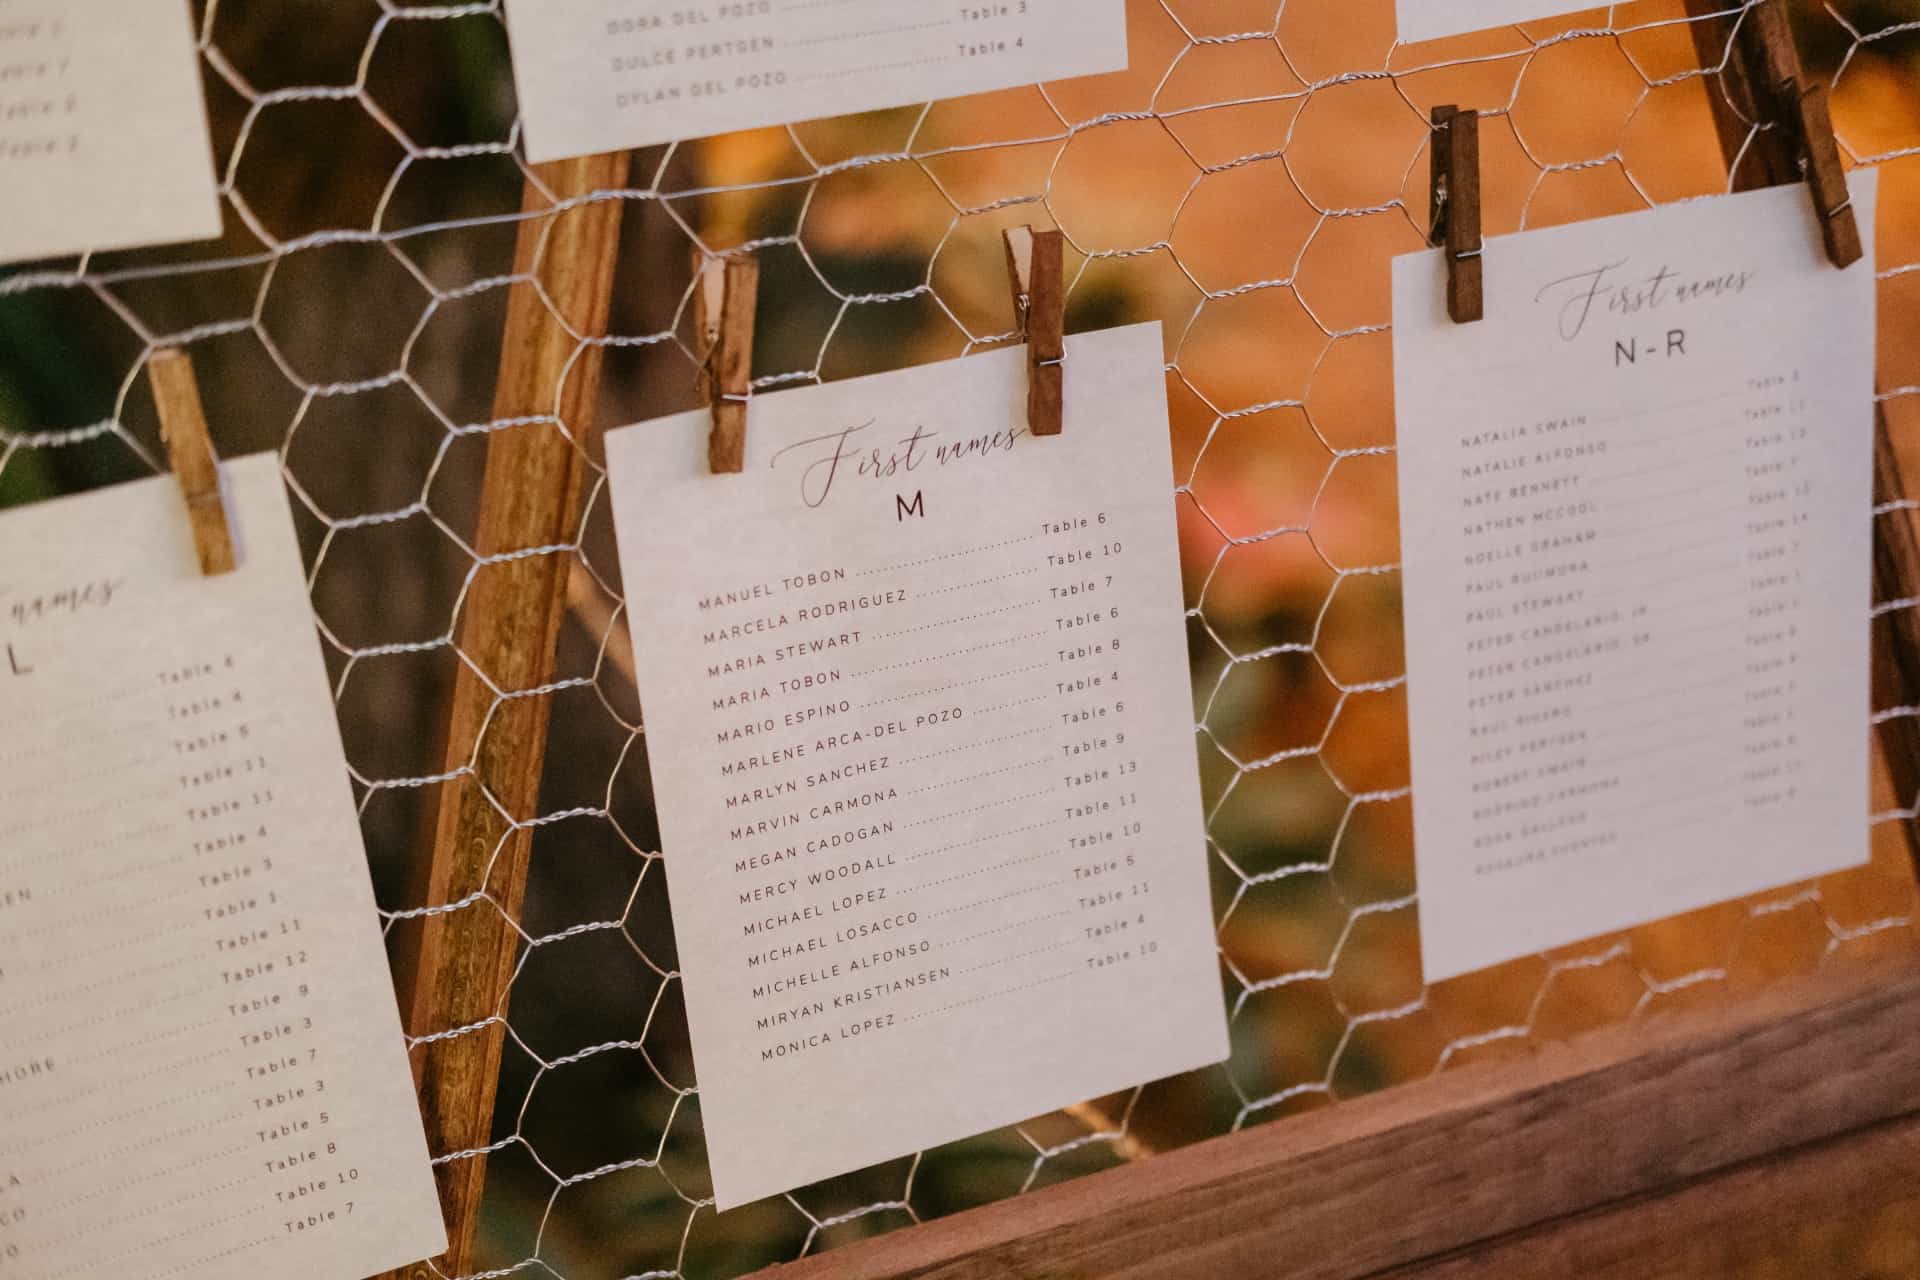 DORA DEL POZO
DULCE PERTGEN Table 3
DYLAN DEL POZO Table 4
names
L
Table 6
Table 4
Table 5
Table 11
Table 11
Table 4
Table 3
Table 1
Table 11
Table 12
Table 9
Table 3
Table 7
Table 3
Table 5
Table 8
Table 10
Table 7
First names
M
MANUEL TOBON Table 6
MARCELA RODRIGUEZ Table 10
MARIA STEWART Table 7
MARIA TOBON Table 6
MARIO ESPINO Table 8
MARLENE ARCA-DEL POZO Table 4
MARLYN SANCHEZ Table 6
MARVIN CARMONA Table 9
MEGAN CADOGAN Table 13
MERCY WOODALL Table 11
MICHAEL LOPEZ Table 10
MICHAEL LOSACCO Table 5
MICHELLE ALFONSO Table 11
MIRYAN KRISTIANSEN Table 4
MONICA LOPEZ Table 10
First names
N-R
NATALIA SWAIN Table
NATALIE ALFONSO Table 11
NATE BENNETT Table
NATHEN MCCOOL Table 7
NOELLE GRAHAM Table
PAUL Table 14
PAUL STEWART Table 7
PETER CANDELARIO, JR Table 1
PETER CANDELARIO, SR Table 1
PETER SANCHEZ Table
RAUL RIVERO Table
RILEY PERTGEN Table
ROBERT SWAIN Table
RODRIGO CARMONA Table
ROSA GALLEGO Table
ROSAURA FUENTES Table